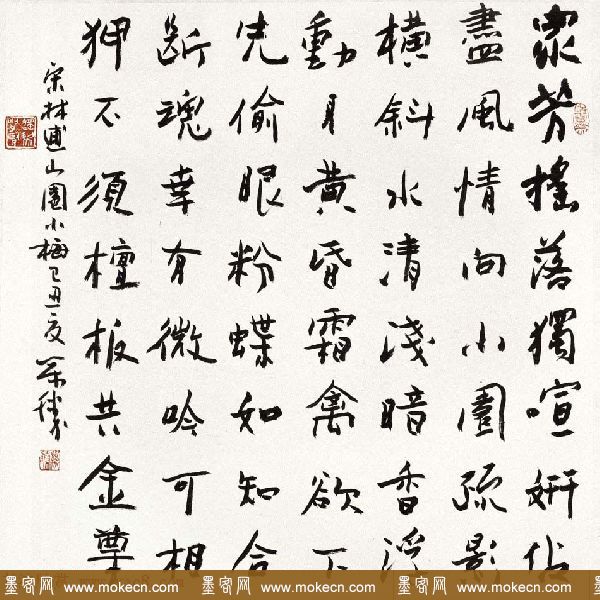 衆芳搖落獨喧妍佔
盡風情向小園疏影
橫斜水清淺暗香浮
動月黃昏霜禽欲下
先偷眼粉蝶如知合
斷魂幸有微吟可相
狎不須檀板共金尊
宋林逋山園小梅己丑夏
墨客网 www.mokecn.com 墨客网 www.mokecn.com 墨客网 www.mokecn.com